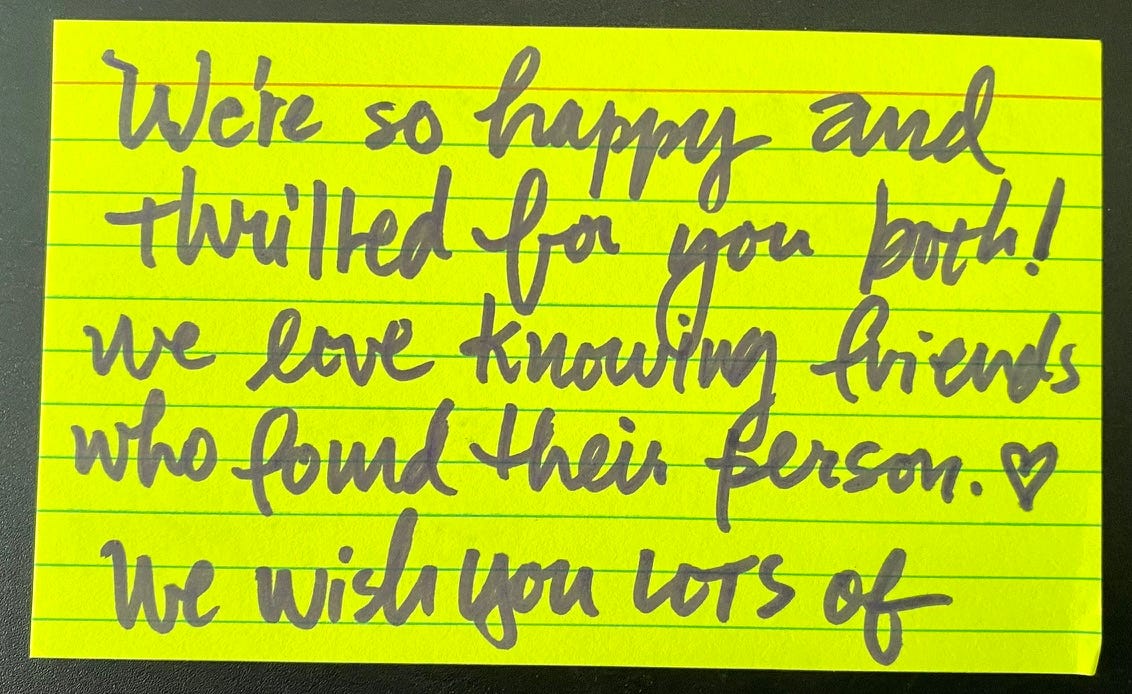 We're so happy and
thrilled for you both!
we love knowing friends
who found their person. ♡
We wish you LOTS of